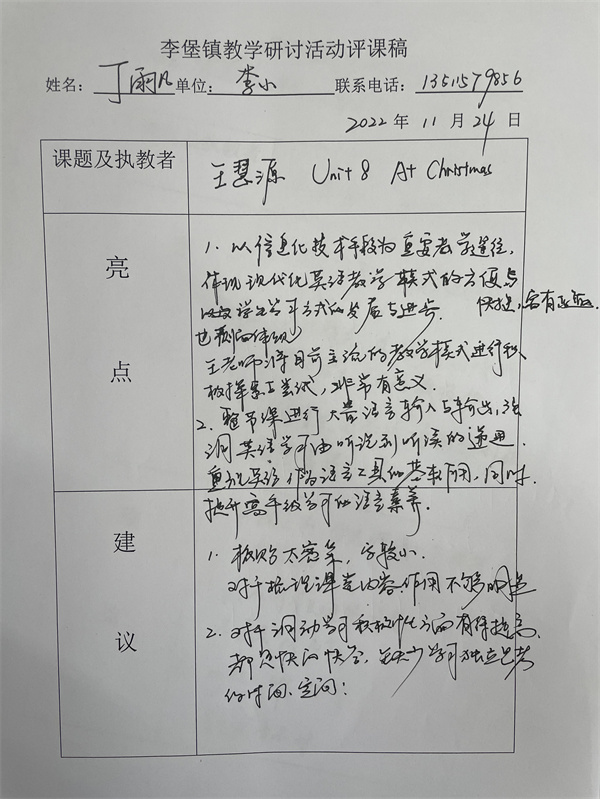 李堡镇教学研讨活动评课稿
姓名：丁雨凡 单位：李小 联系电话：13511579856
2022年11月24日
课题及执教者 王慧源 Unit 8 At Christmas
亮点
1. 以信息化技术手段为重要教学途径，
体现现代化英语教学模式的方便与
快捷，
学生学习方式的发展与进步．
也侧面体现
王老师将目前主流的教学模式进行积
极探索与尝试，非常有意义．
2. 整节课进行大量语言输入与输出，强
调英语学习由听说到听读的递进．
重视英语作为语言工具的基本作用，同时
提升高年级学习的语言素养．
建议
1. 板贴太密集，字较小．
对于梳理课堂内容作用不够明显
2. 对于调动学习积极性方面有待提高，
都是快问快答，缺少学习独立思考
的时间、空间；